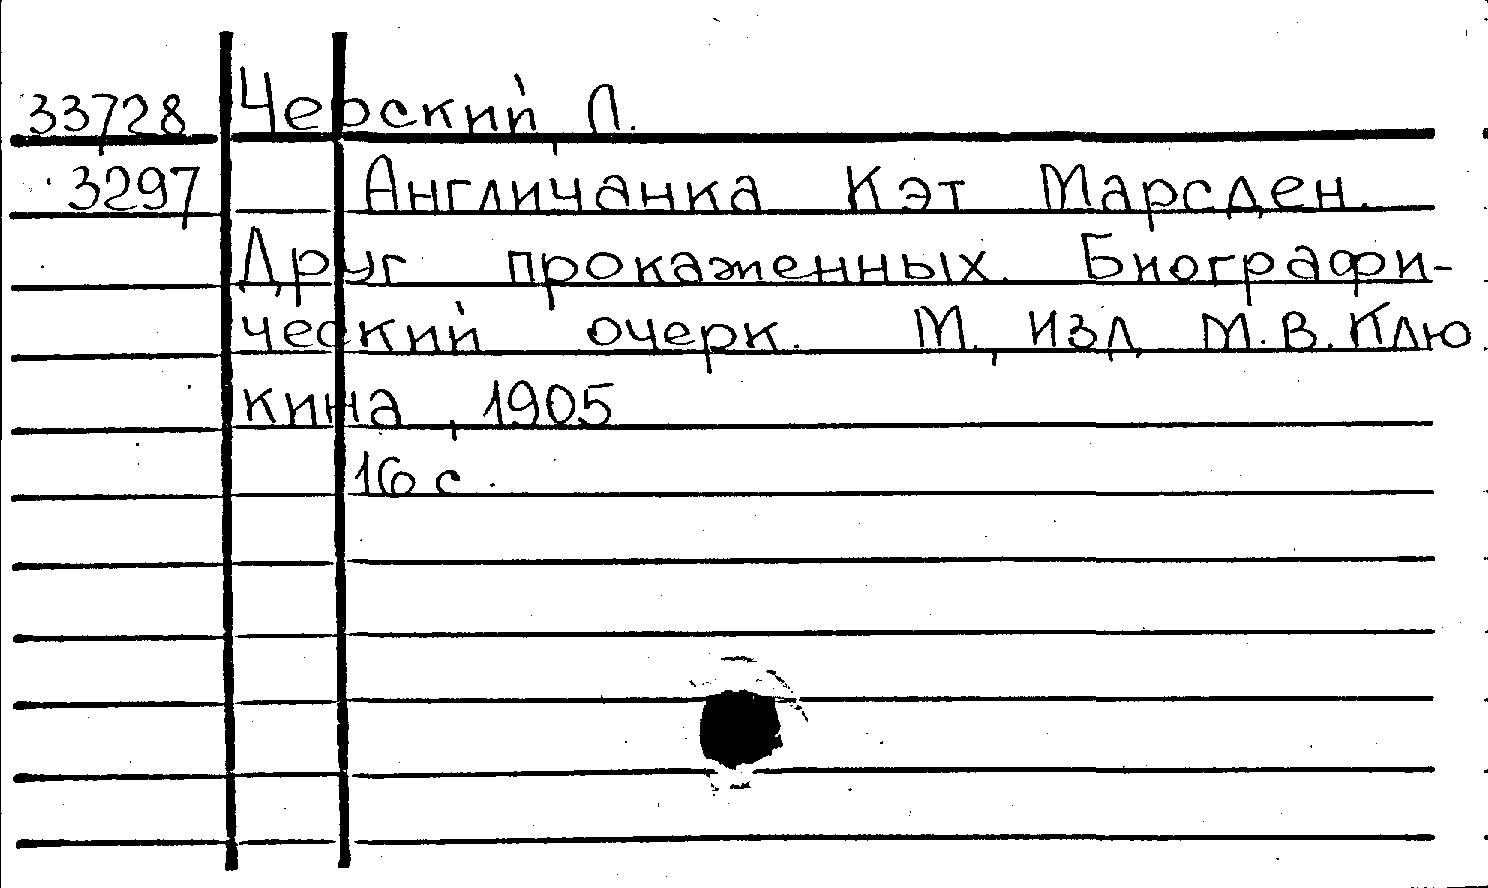 33728 Черский, Л.
3297 Англичанка Кэт Марсден.
Друг прокаженных. Биографи-
ческий очерк. М., изд. М.В. Клю
кина, 1905
16 с.